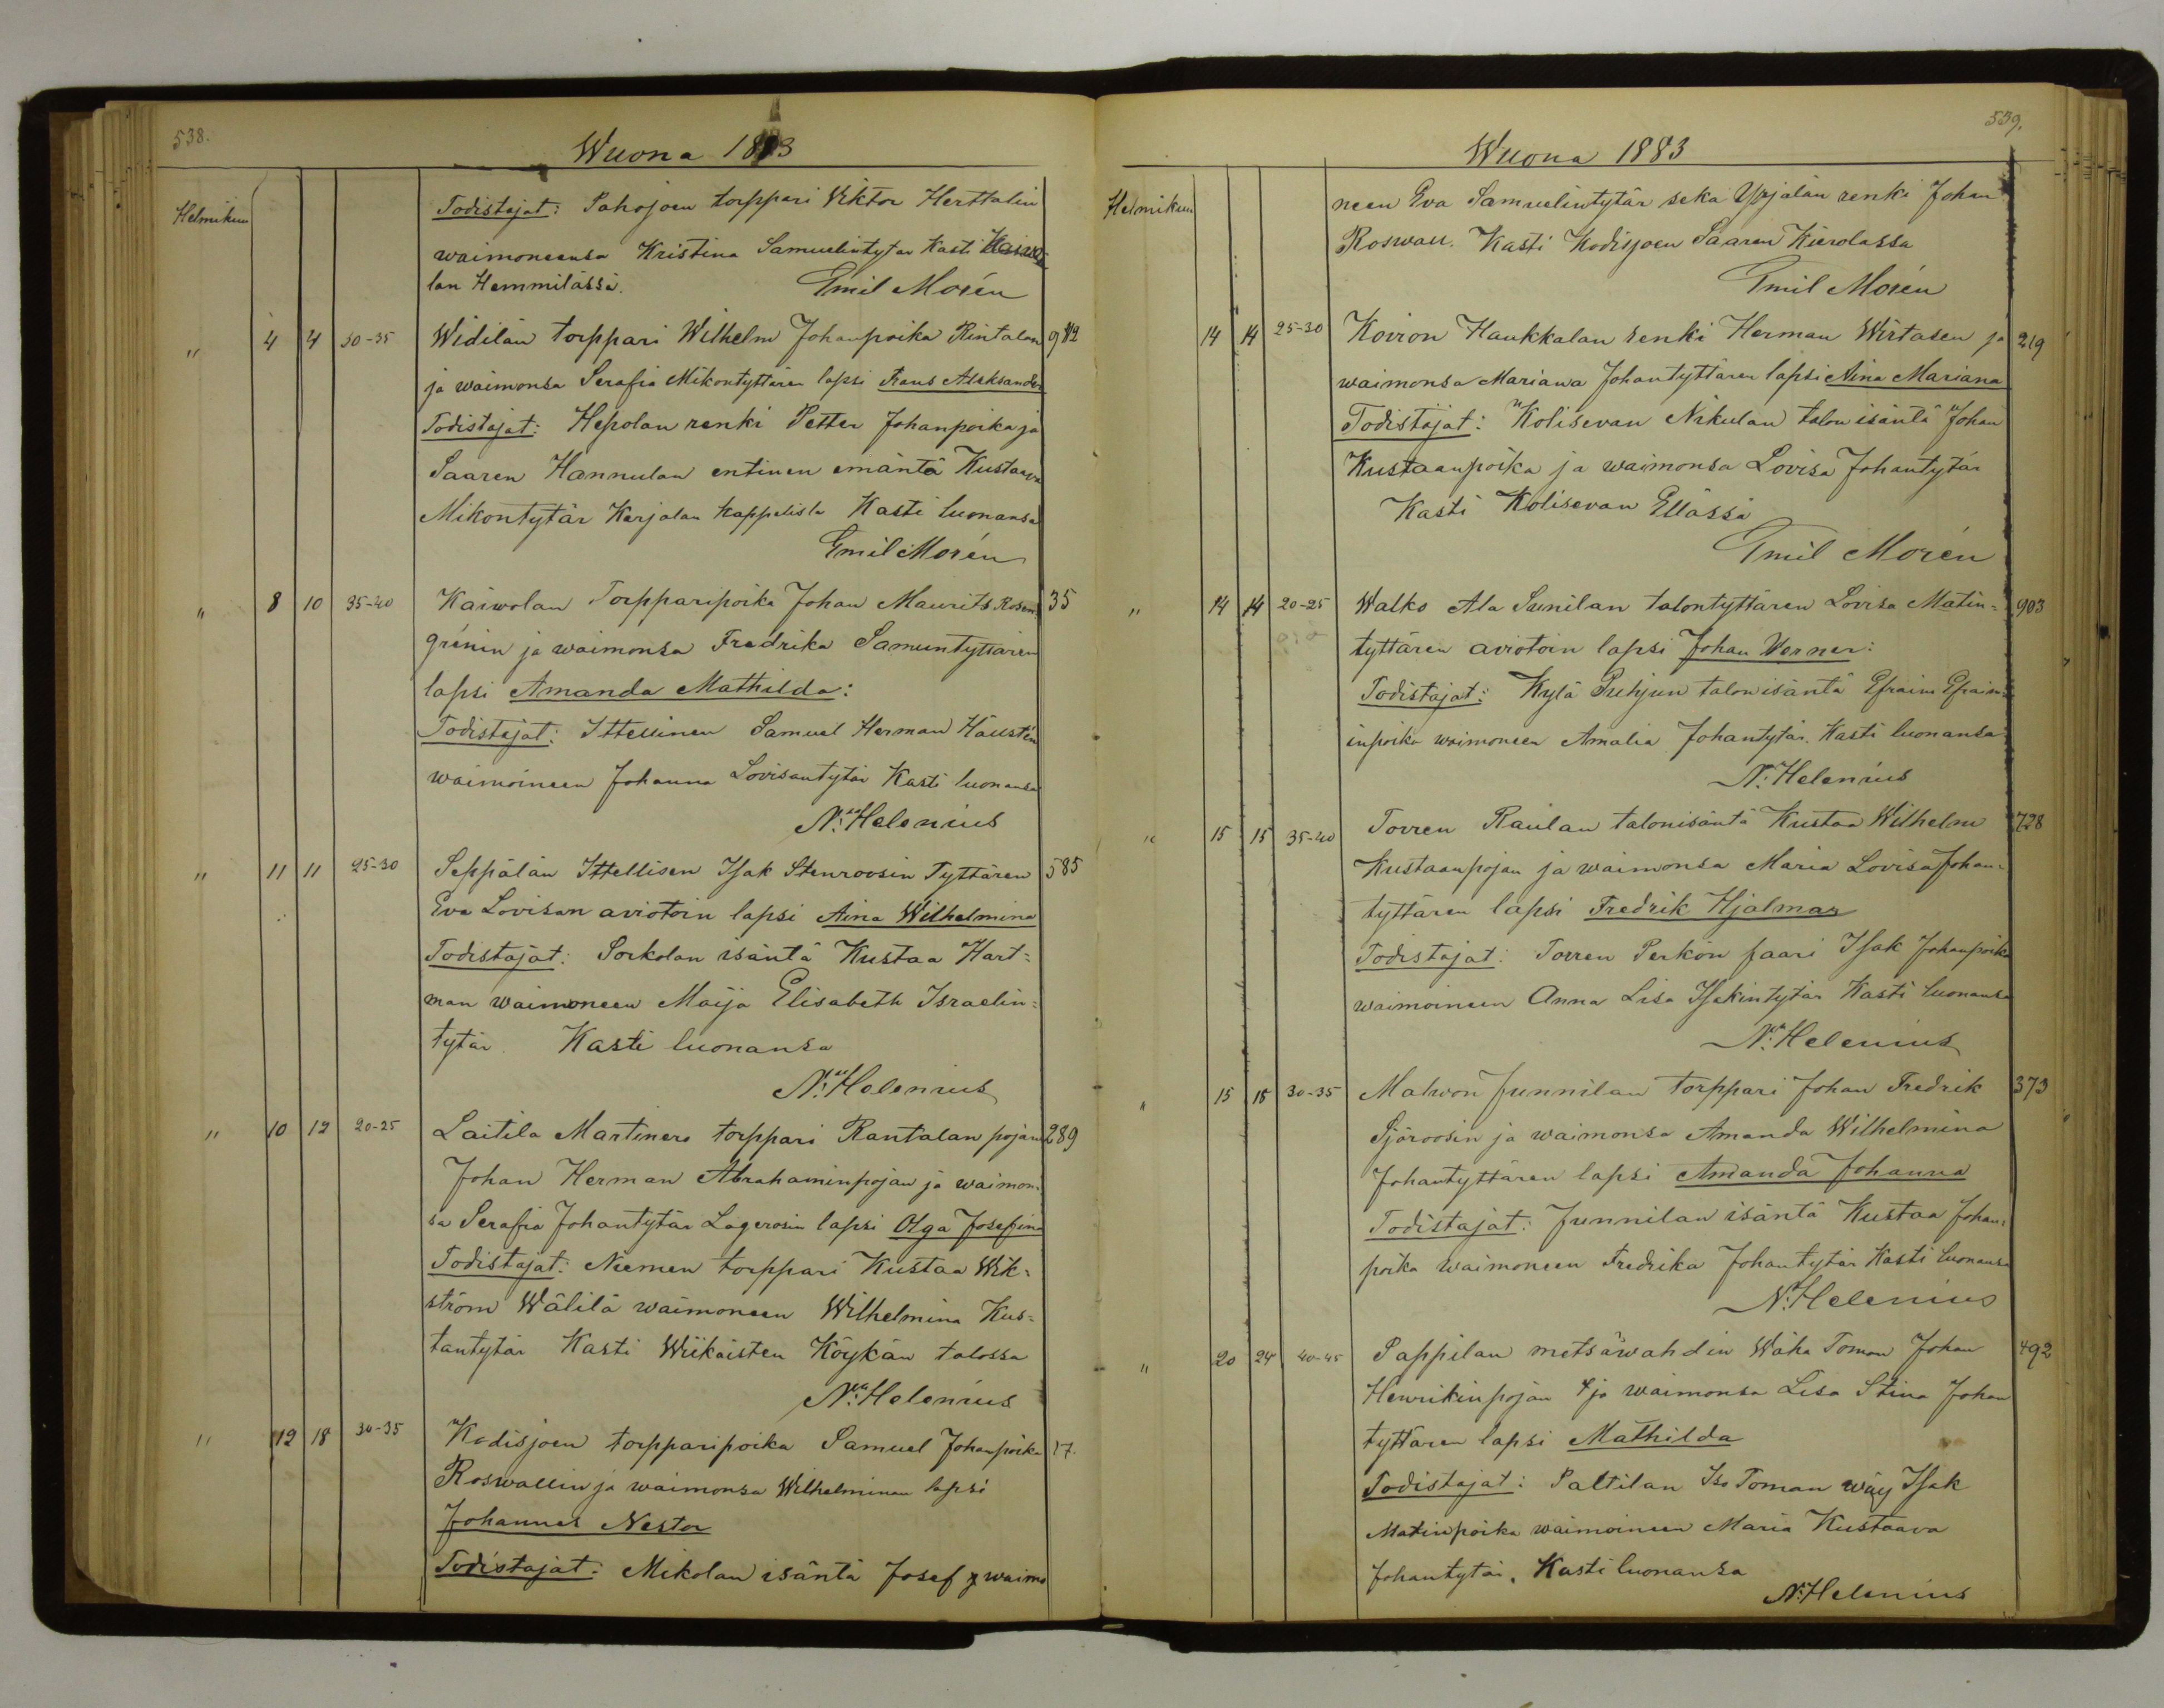 538.
Wuona 1883
Helmikuu
Todistajat: Pahojoen torppari Viktor Herttalin
waimoneensa Kristina Samuelintytär Kasti Kaiwo
lan Hemmilässä. Emil Morén
" 4 4 30-35 Widilän torppari Wilhelm Johanpoika Rintalan 982
ja waimonsa Serafia Mikontyttären lapsi Frans Aleksander
Todistajat: Hepolan renki Petter Johanpoika ja
Saaren Hannulan entinen emäntä Kustaava
Mikontytär Karjalan kappelista Kasti luonansa
Emil Morén
" 8 10 35-40 Kaiwolan Torpparipoika Johan Maurits Rosen= 35
grénin ja waimonsa Fredrika Samuntyttären
lapsi Amanda Mathilda:
Todistajat: Ittellinen Samuel Herman Häustén
waimoineen Johanna Lovisantytär Kasti luonansa
N. Helenius
" 11 11 25-30 Seppälän Ittellisen Isak Stenroosin Tyttären 585
Eva Lovisan aviotoin lapsi Aina Wilhelmina
Todistajat: Sorkolan isäntä Kustaa Hart=
man waimoneen Maija Elisabeth Israelin=
tytär. Kasti luonansa
N. Helenius
" 10 12 20-25 Laitila Martinero torppari Rantalan pojan 289
Johan Herman Abrahaminpojan ja waimon=
sa Serafia Johantytär Lagerosin lapsi Olga Josefina
Todistajat: Niemen torppari Kustaa Wik=
ström Wälilä waimoneen Wilhelmina Kus=
tantytär Kasti Wiikaisten Köykän talossa
N. Helenius
" 12 18 30-35 Kodisjoen torpparipoika Samuel Johanpoika 17.
Roswallin ja waimonsa Wilhelminan lapsi
Johannes Nestor
Todistajat: Mikolan isäntä Josef ja waimo
539.
Wuona 1883
Helmikuu
neen Eva Samuelintytär sekä Yrjälän renki Johan
Roswall. Kasti Kodisjoen Saaren Kierolassa
Emil Morén
14 14 25-30 Koivon Haukkalan renki Herman Wirtasen ja 219
waimonsa Mariana Johantyttären lapsi Aina Mariana
Todistajat: Kolisevan Nikulan talon isäntä Johan
Kustaanpoika ja waimonsa Lovisa Johantytär
Kasti Kolisevan Ellässä
Emil Morén
" 14 14 20-25 Walko Ala Sunilan talontyttären Lovisa Matin= 903
tyttären aviotoin lapsi Johan Werner:
Todistajat: Kylä Puhjun talon isäntä Efraim Efraim=
inpoika waimoneen Amalia Johantytär. Kasti luonansa
N. Helenius
" 15 15 35-40 Torren Raulan talonisäntä Kustaa Wilhelm 728
Kustaanpojan ja waimonsa Maria Lovisa Johan=
tyttären lapsi Fredrik Hjalmar
Todistajat: Torren Perkön faari Isak Johanpoika
waimoineen Anna Lisa Isakintytär Kasti luonansa
N. Helenius
" 15 18 30-35 Malwon Junnilan torppari Johan Fredrik 373
Sjöroosin ja waimonsa Amanda Wilhelmina
Johantyttären lapsi Amanda Johanna
Todistajat: Junnilan isäntä Kustaa Johan=
poika waimoneen Fredrika Johantytär Kasti luonansa
N. Helenius
" 20 24 40-45 Pappilan metsäwahdin Wähä Toman Johan 492
Henrikinpojan ja waimonsa Lisa Stina Johan
tyttären lapsi Mathilda
Todistajat: Paltilan Iso Toman wäy Isak
Matinpoika waimoineen Maria Kustaava
Johantytär. Kasti luonansa
N. Helenius